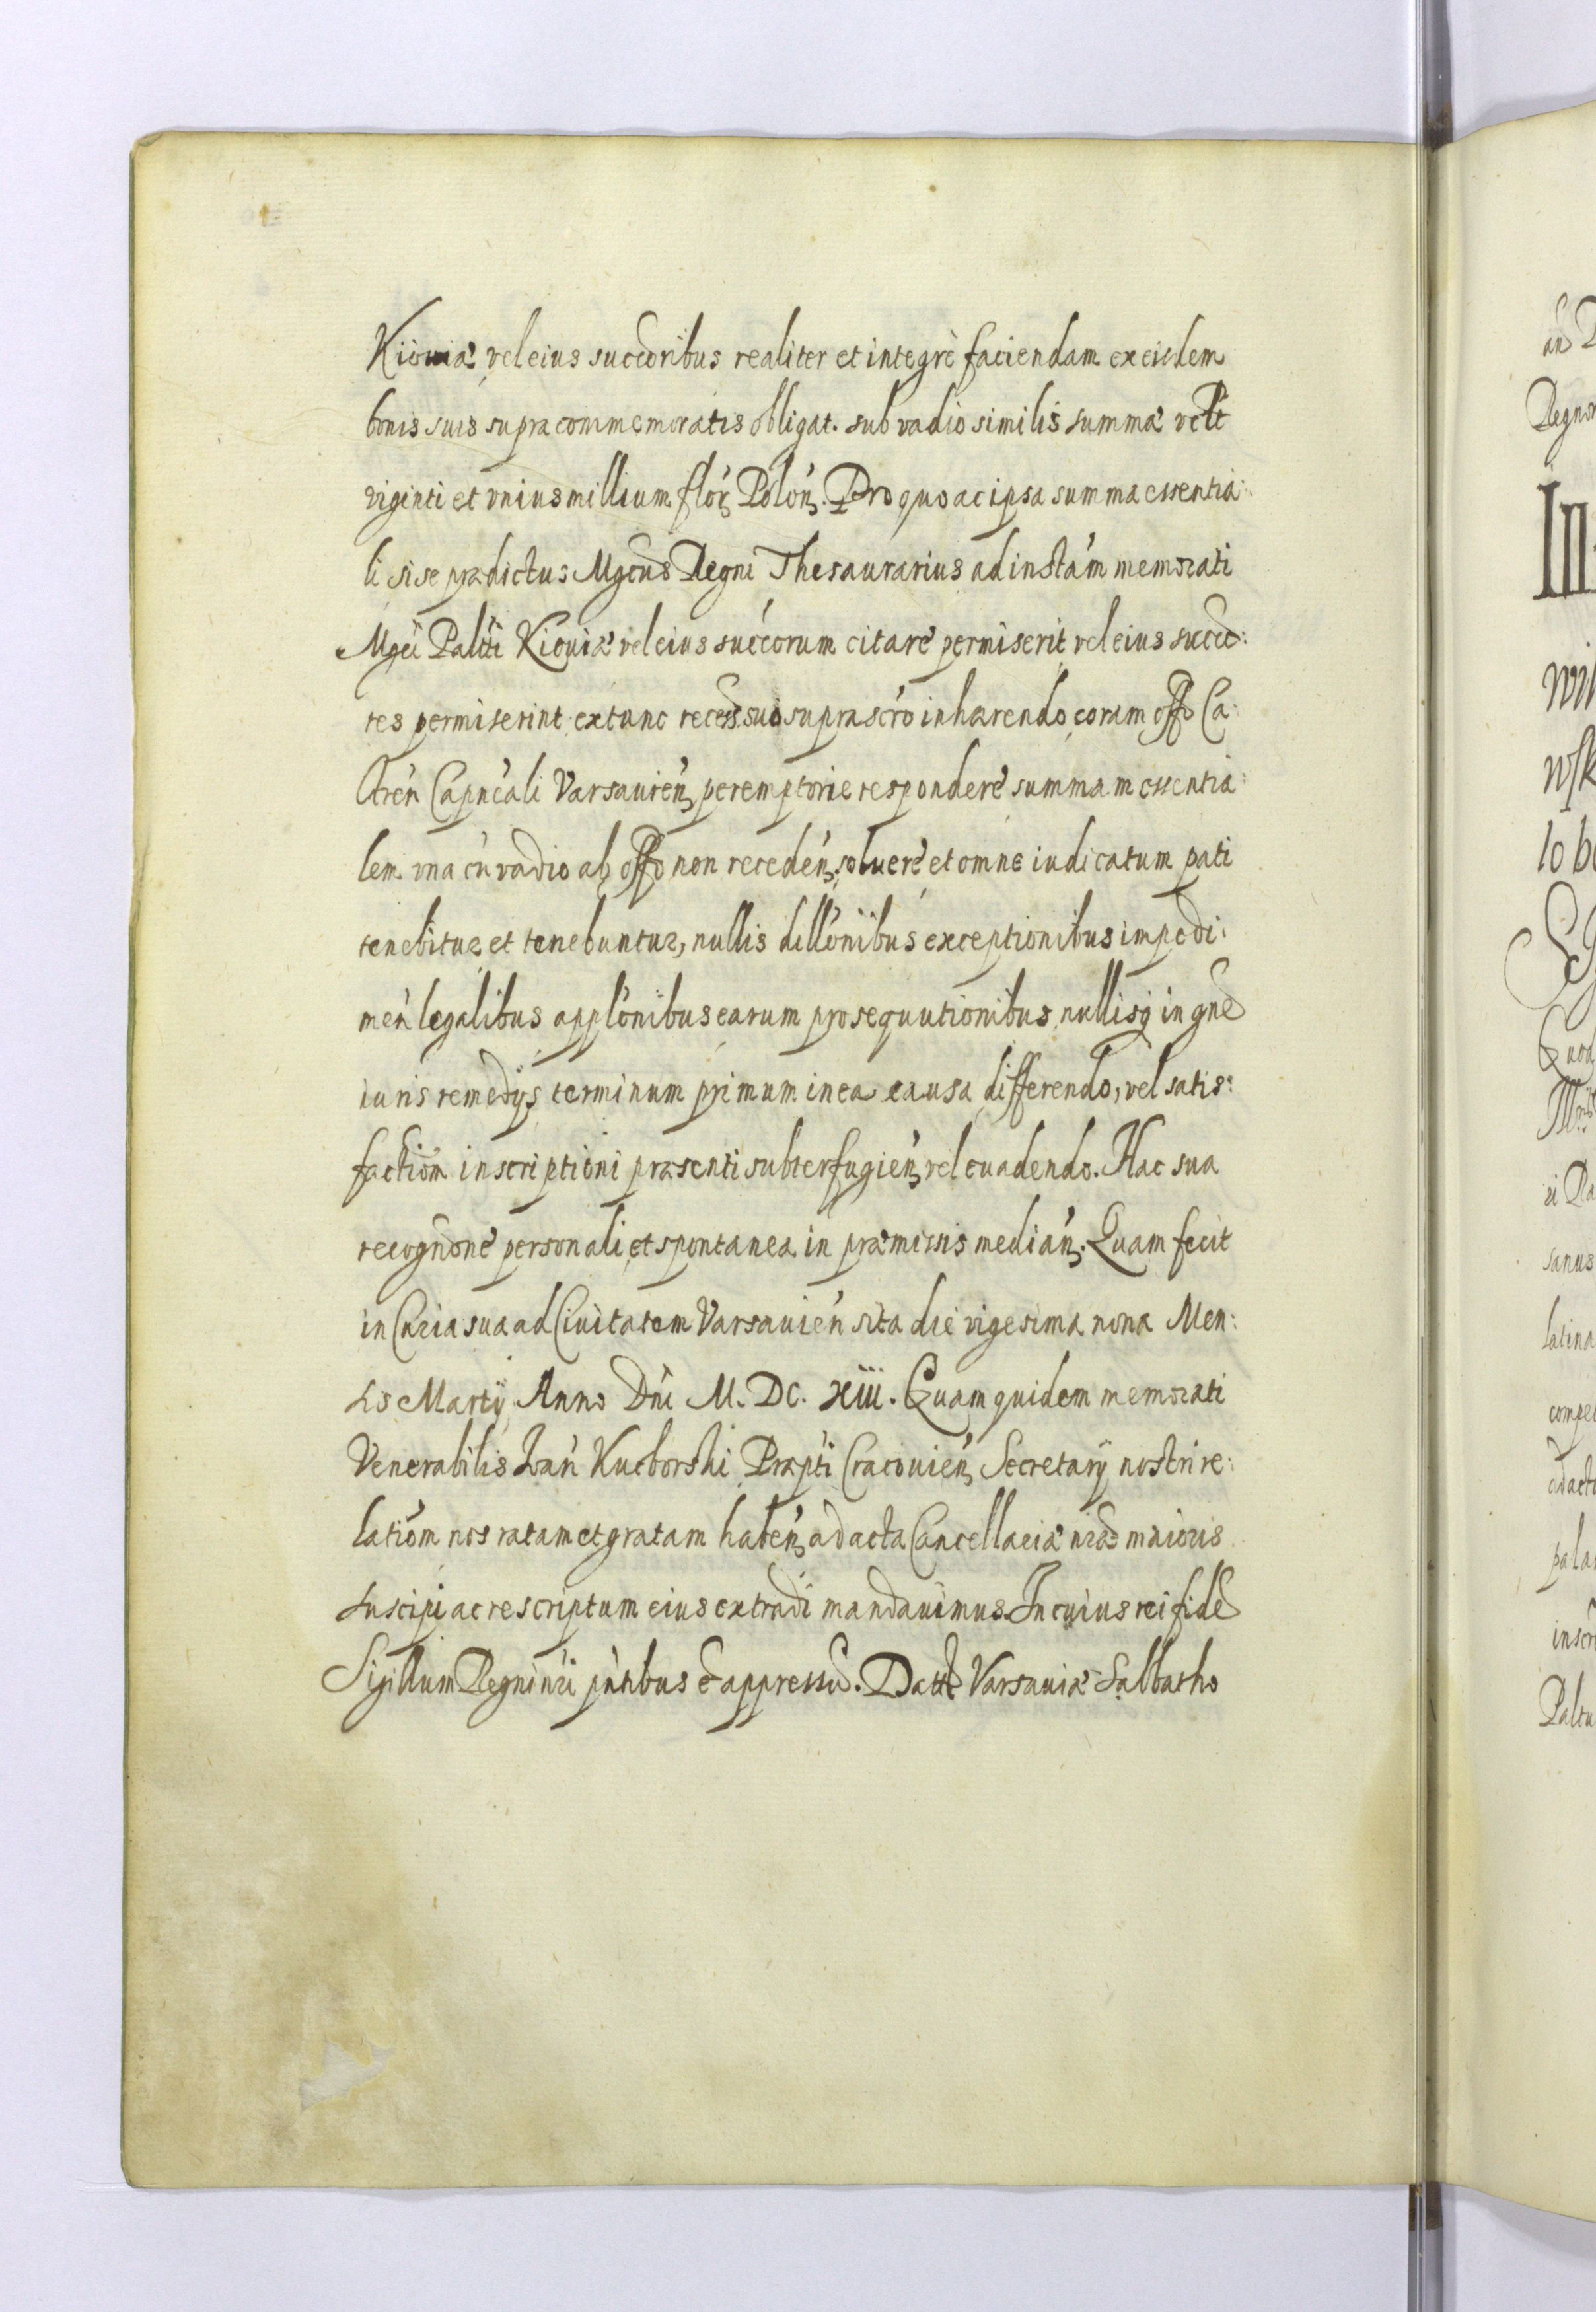 Kiiouiæ vel eius succoribus realiter et integrè faciendam ex eisdem
bonis suis supra commemoratis obligat. sub vadio similis summæ vdlt
viginti et vnius millium flor̃ Polon̄. Pro quo ac ipsa summa essentia:
li si se prædictus Mgcus Regni Thesaurarius ad instám memorati
Mgci Palti Kiouiæ vel eius succorum citare permiserit vel eius succo:
res permiserint extunc recess. suo suprascro inhærendo coram offo Ca:
stren Capneali Varsauien̄ peremptorie respondere summam essentia:
lem vna cu vadio ab offo non receden̄. soluere et omne iudicatum pati
tenebitur et tenebuntur, nullis dillonibus exceptionibus impedi:
men legalibus applonibus earum prosequutionibus nullisq in gne
iuris remedys terminum primum in ea causa differendo, vel satis:
factiom inscriptioni præsenti subterfugien̄ vel euadendo. Hac sua
recognone personali et spontanea in præmissis median̄. Quam fecit
in Curia sua ad Ciuitatem Varsauien sita die vigesima nona Men:
sis Martij Anno Dni M. DC. xiii. Quam quidem memorati
Venerabilis Ioan Kucborski Præpti Cracouien̄ Secretarij nostri re:
latiom nos ratam et gratam haben̄ ad acta Cancellariæ nræ maioris
suscipi ac rescriptum eius extradi mandauimus. In cuius rei fide
Sigillum Regni nri pntibus e appressu. Datt Varsauiæ Sabbatho
an
Regno
In
wi
wsk
lo b
Quod
ei Pa
sanus
latina
compe
adact
pala
inscr
Paltu